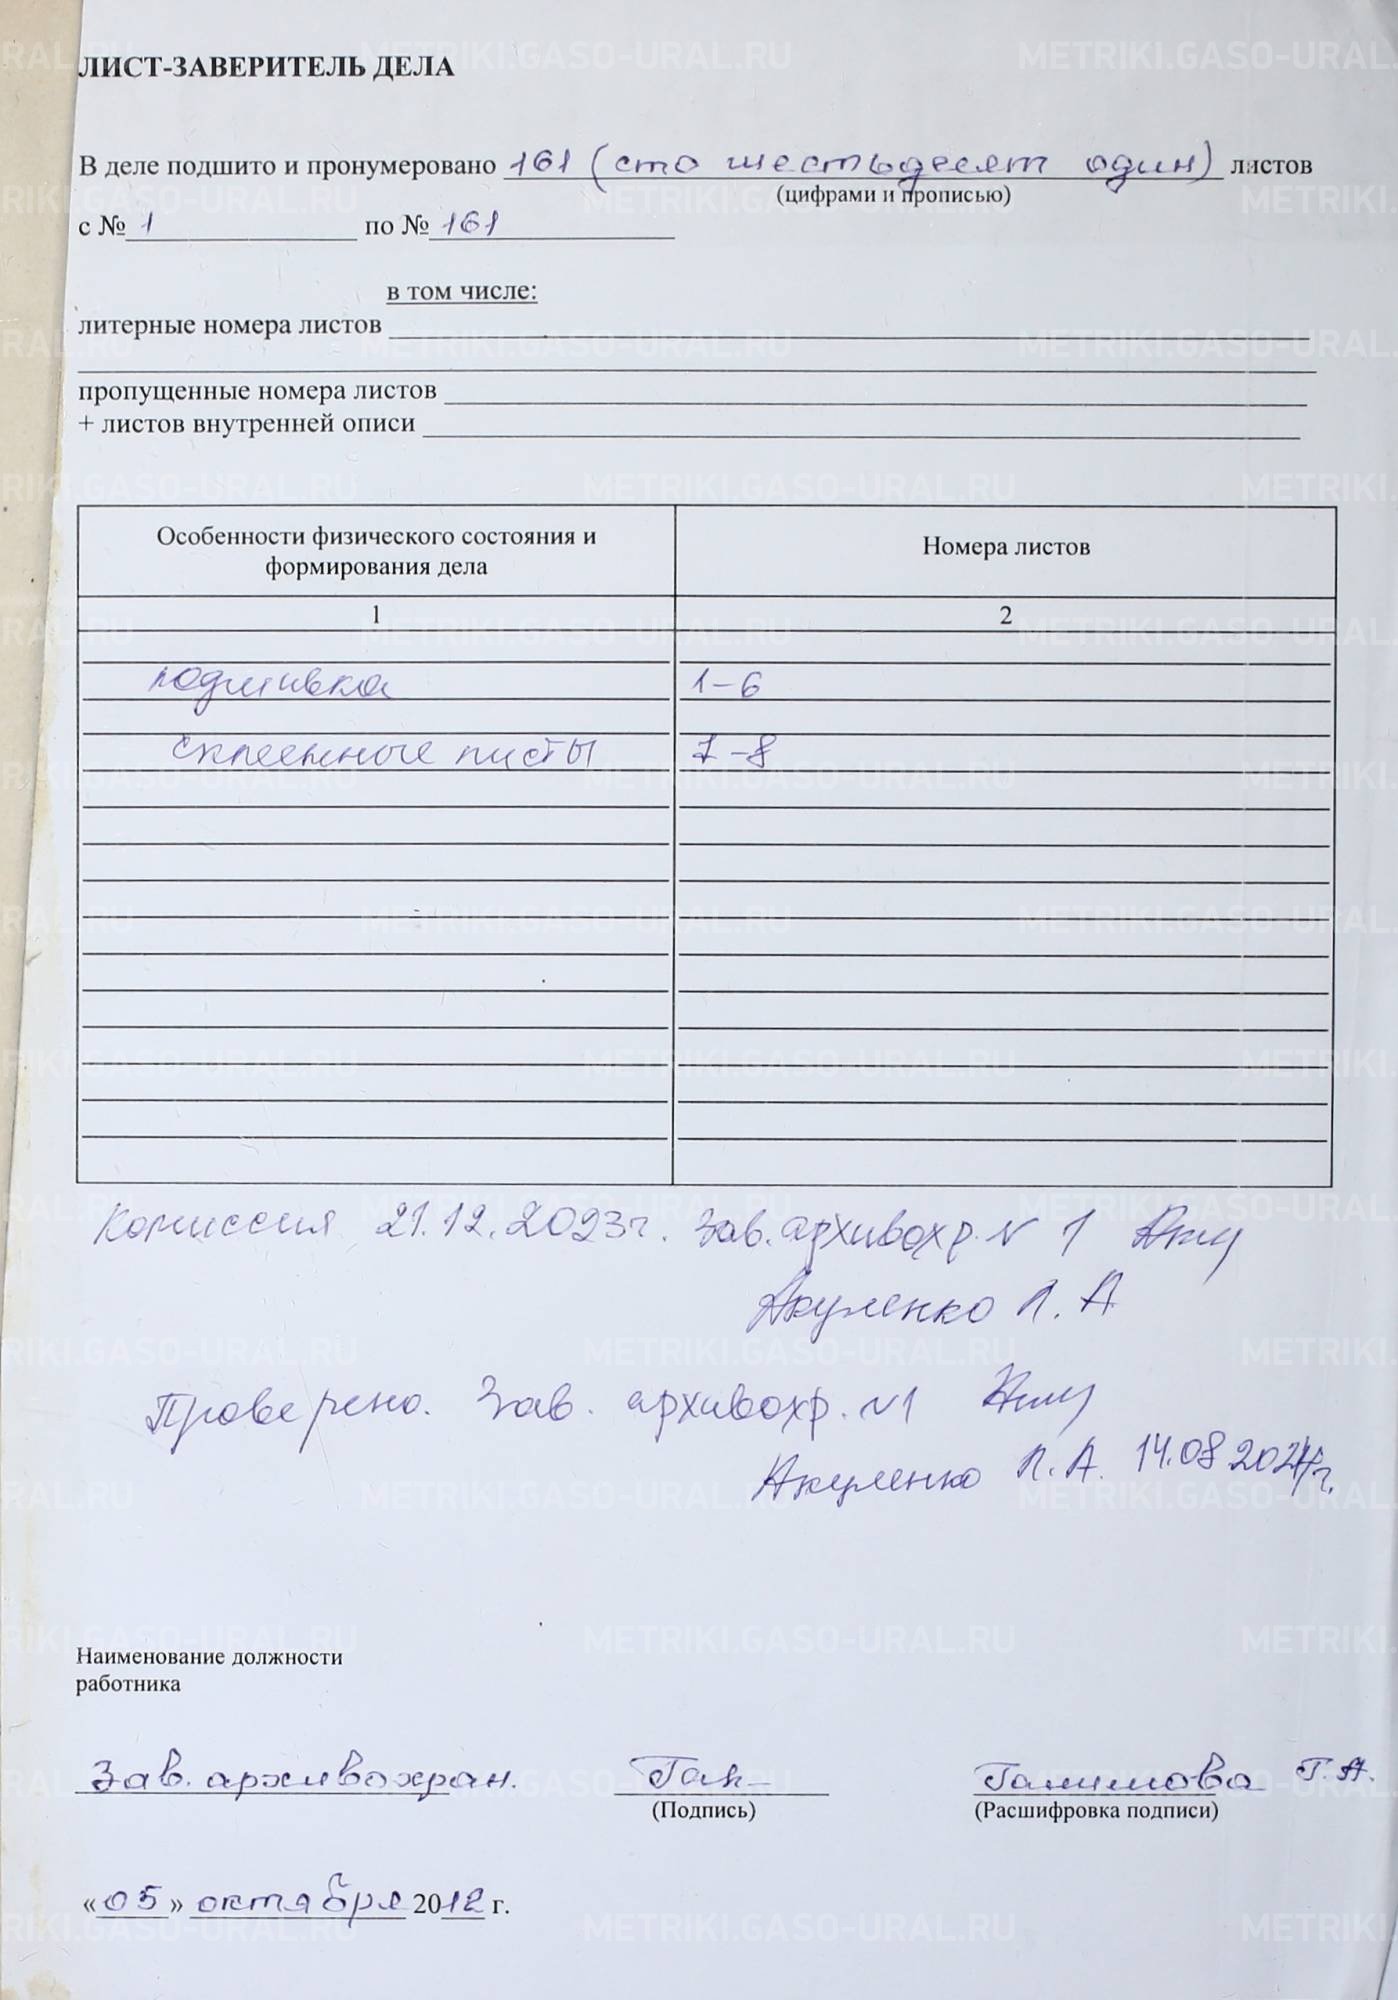 ЛИСТ-ЗАВЕРИТЕЛЬ ДЕЛА
В деле подшито и пронумеровано 161 (сто шестьдесят один) листов
(цифрами и прописью)
с № 1 по № 161
в том числе:
литерные номера листов
пропущенные номера листов
+ листов внутренней описи
Особенности физического состояния и формирования дела
Номера листов
1 2
подшивка 1-6
склеенные листы 7-8
Комиссия 21.12.2023г. Зав. архивохр. № 1
Акуленко Л. А
Проверено. Зав. архивохр. №1
Акуленко Л.А. 14.08 2024г.
Наименование должности
работника
Зав. архивохран. Гал Галимова Г.А.
(Подпись) (Расшифровка подписи)
«05» октября 2012 г.
METRIKI.GASO-URAL.RU